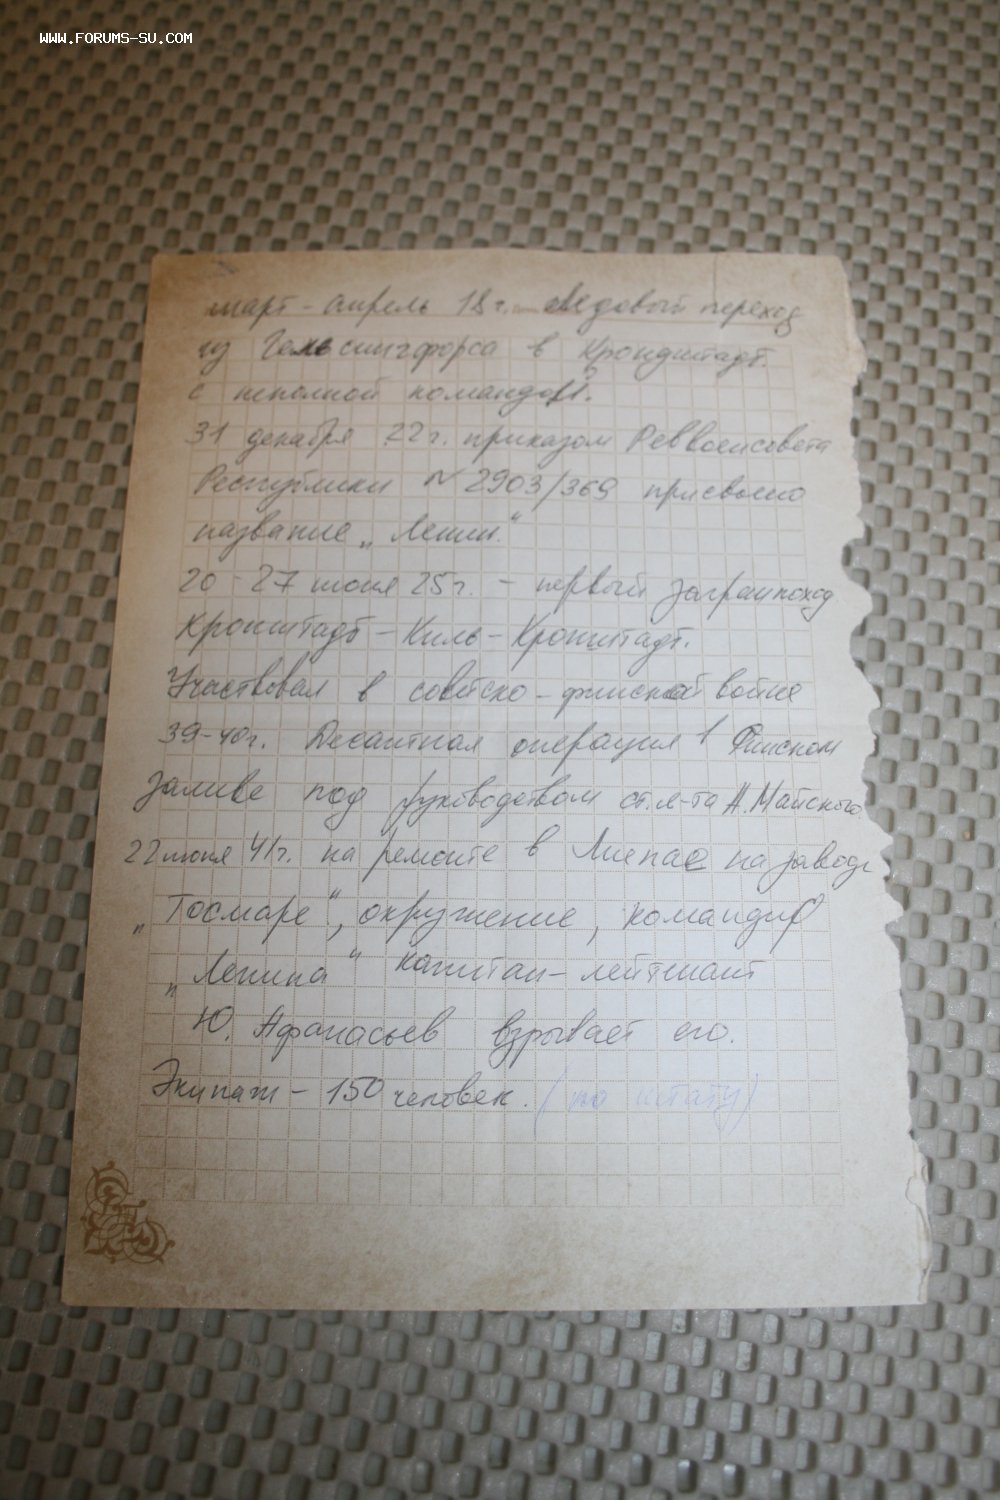 WWW.FORUMS-SU.COM
март - апрель 18 г. Ледовый переход
из Гельсингфорса в Кронштадт.
с неполной командой.
31 декабря 22 г. приказом Реввоенсовета
Республики N 2903/369 присвоено
название „Ленин."
20-27 июня 25 г. - первый загранпоход
Кронштадт - Киль - Кронштадт.
Участвовал в советско-финской войне
39-40 г. Десантная операция в Финском
заливе под руководством ст. л-та А. Майского.
22 июня 41 г. на ремонте в Лиепае на заводе
„Тосмаре", окружение, командир
„Ленина" капитан-лейтенант
Ю. Афанасьев взрывает его.
Экипаж - 150 человек. (по штату)